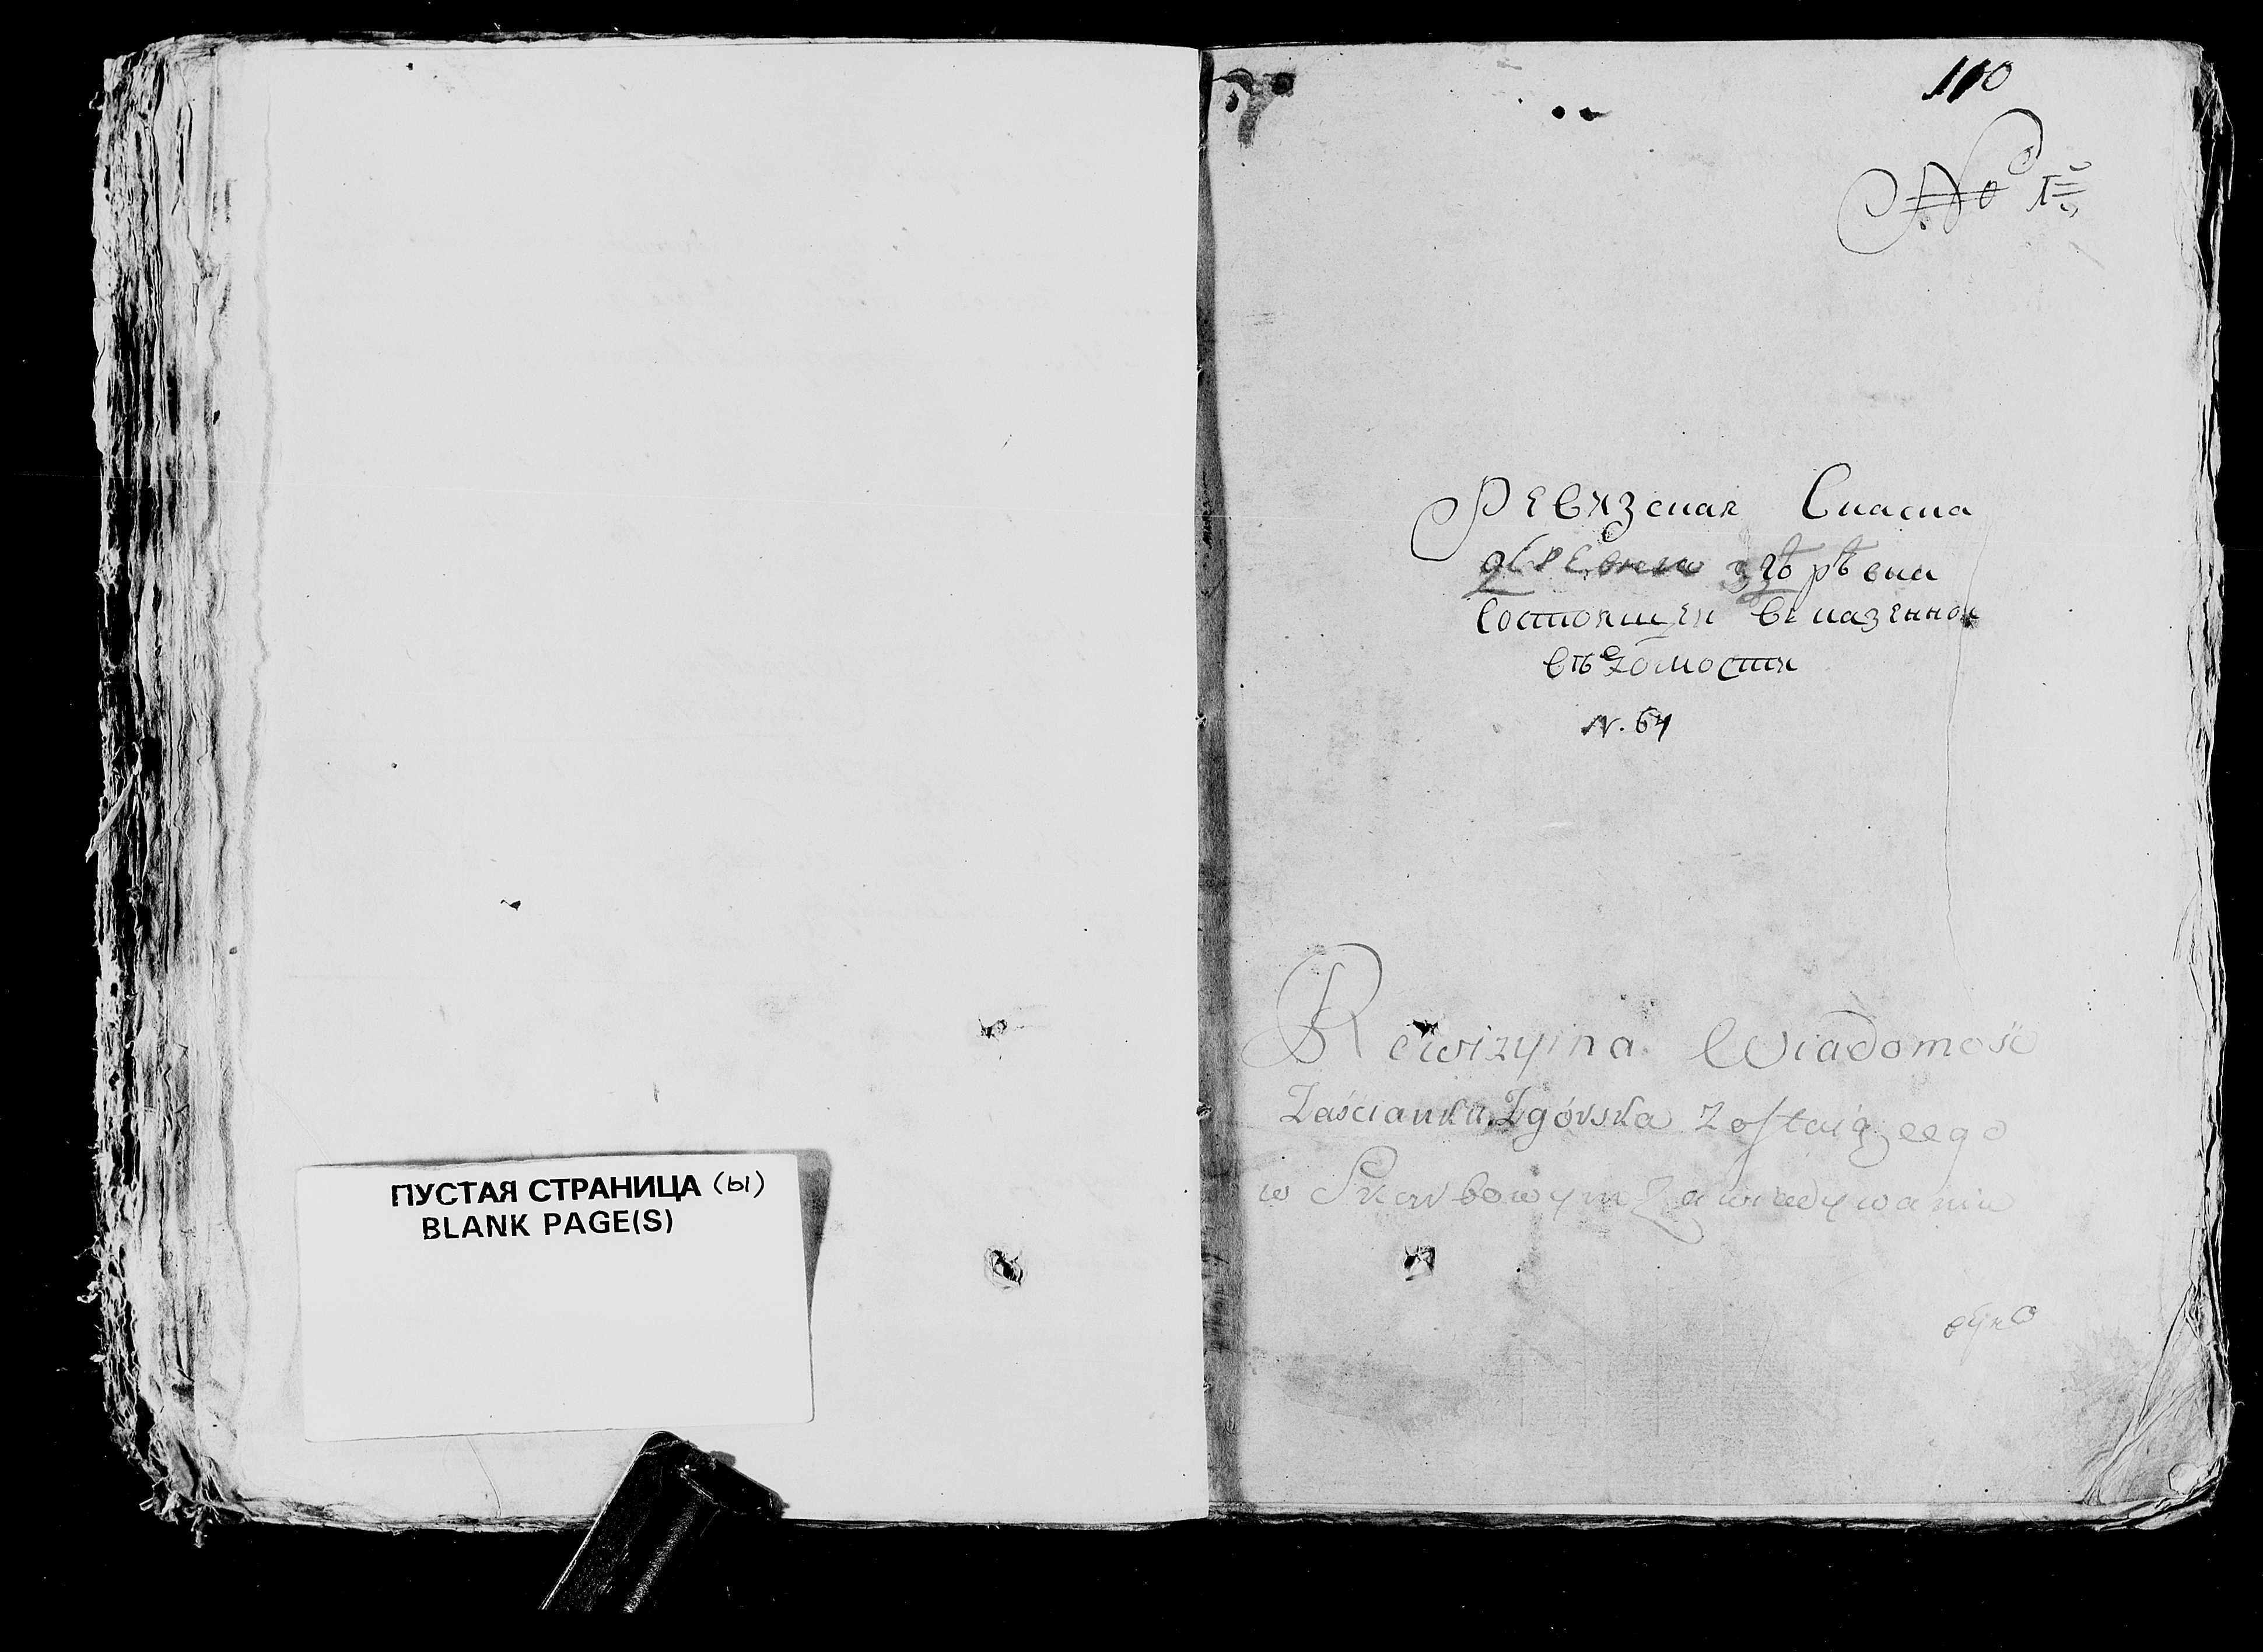 ПУСТАЯ СТРАНИЦА (ы)
BLANK PAGE(S)
110
No
Ревизская Сказка
деревни
состоящей в казенной
вѣдомости
N. 64
Rewizyina Wiadomość
Zaścianku Zgórska Zostaiącego
w Skarbowym Zawiadywaniu